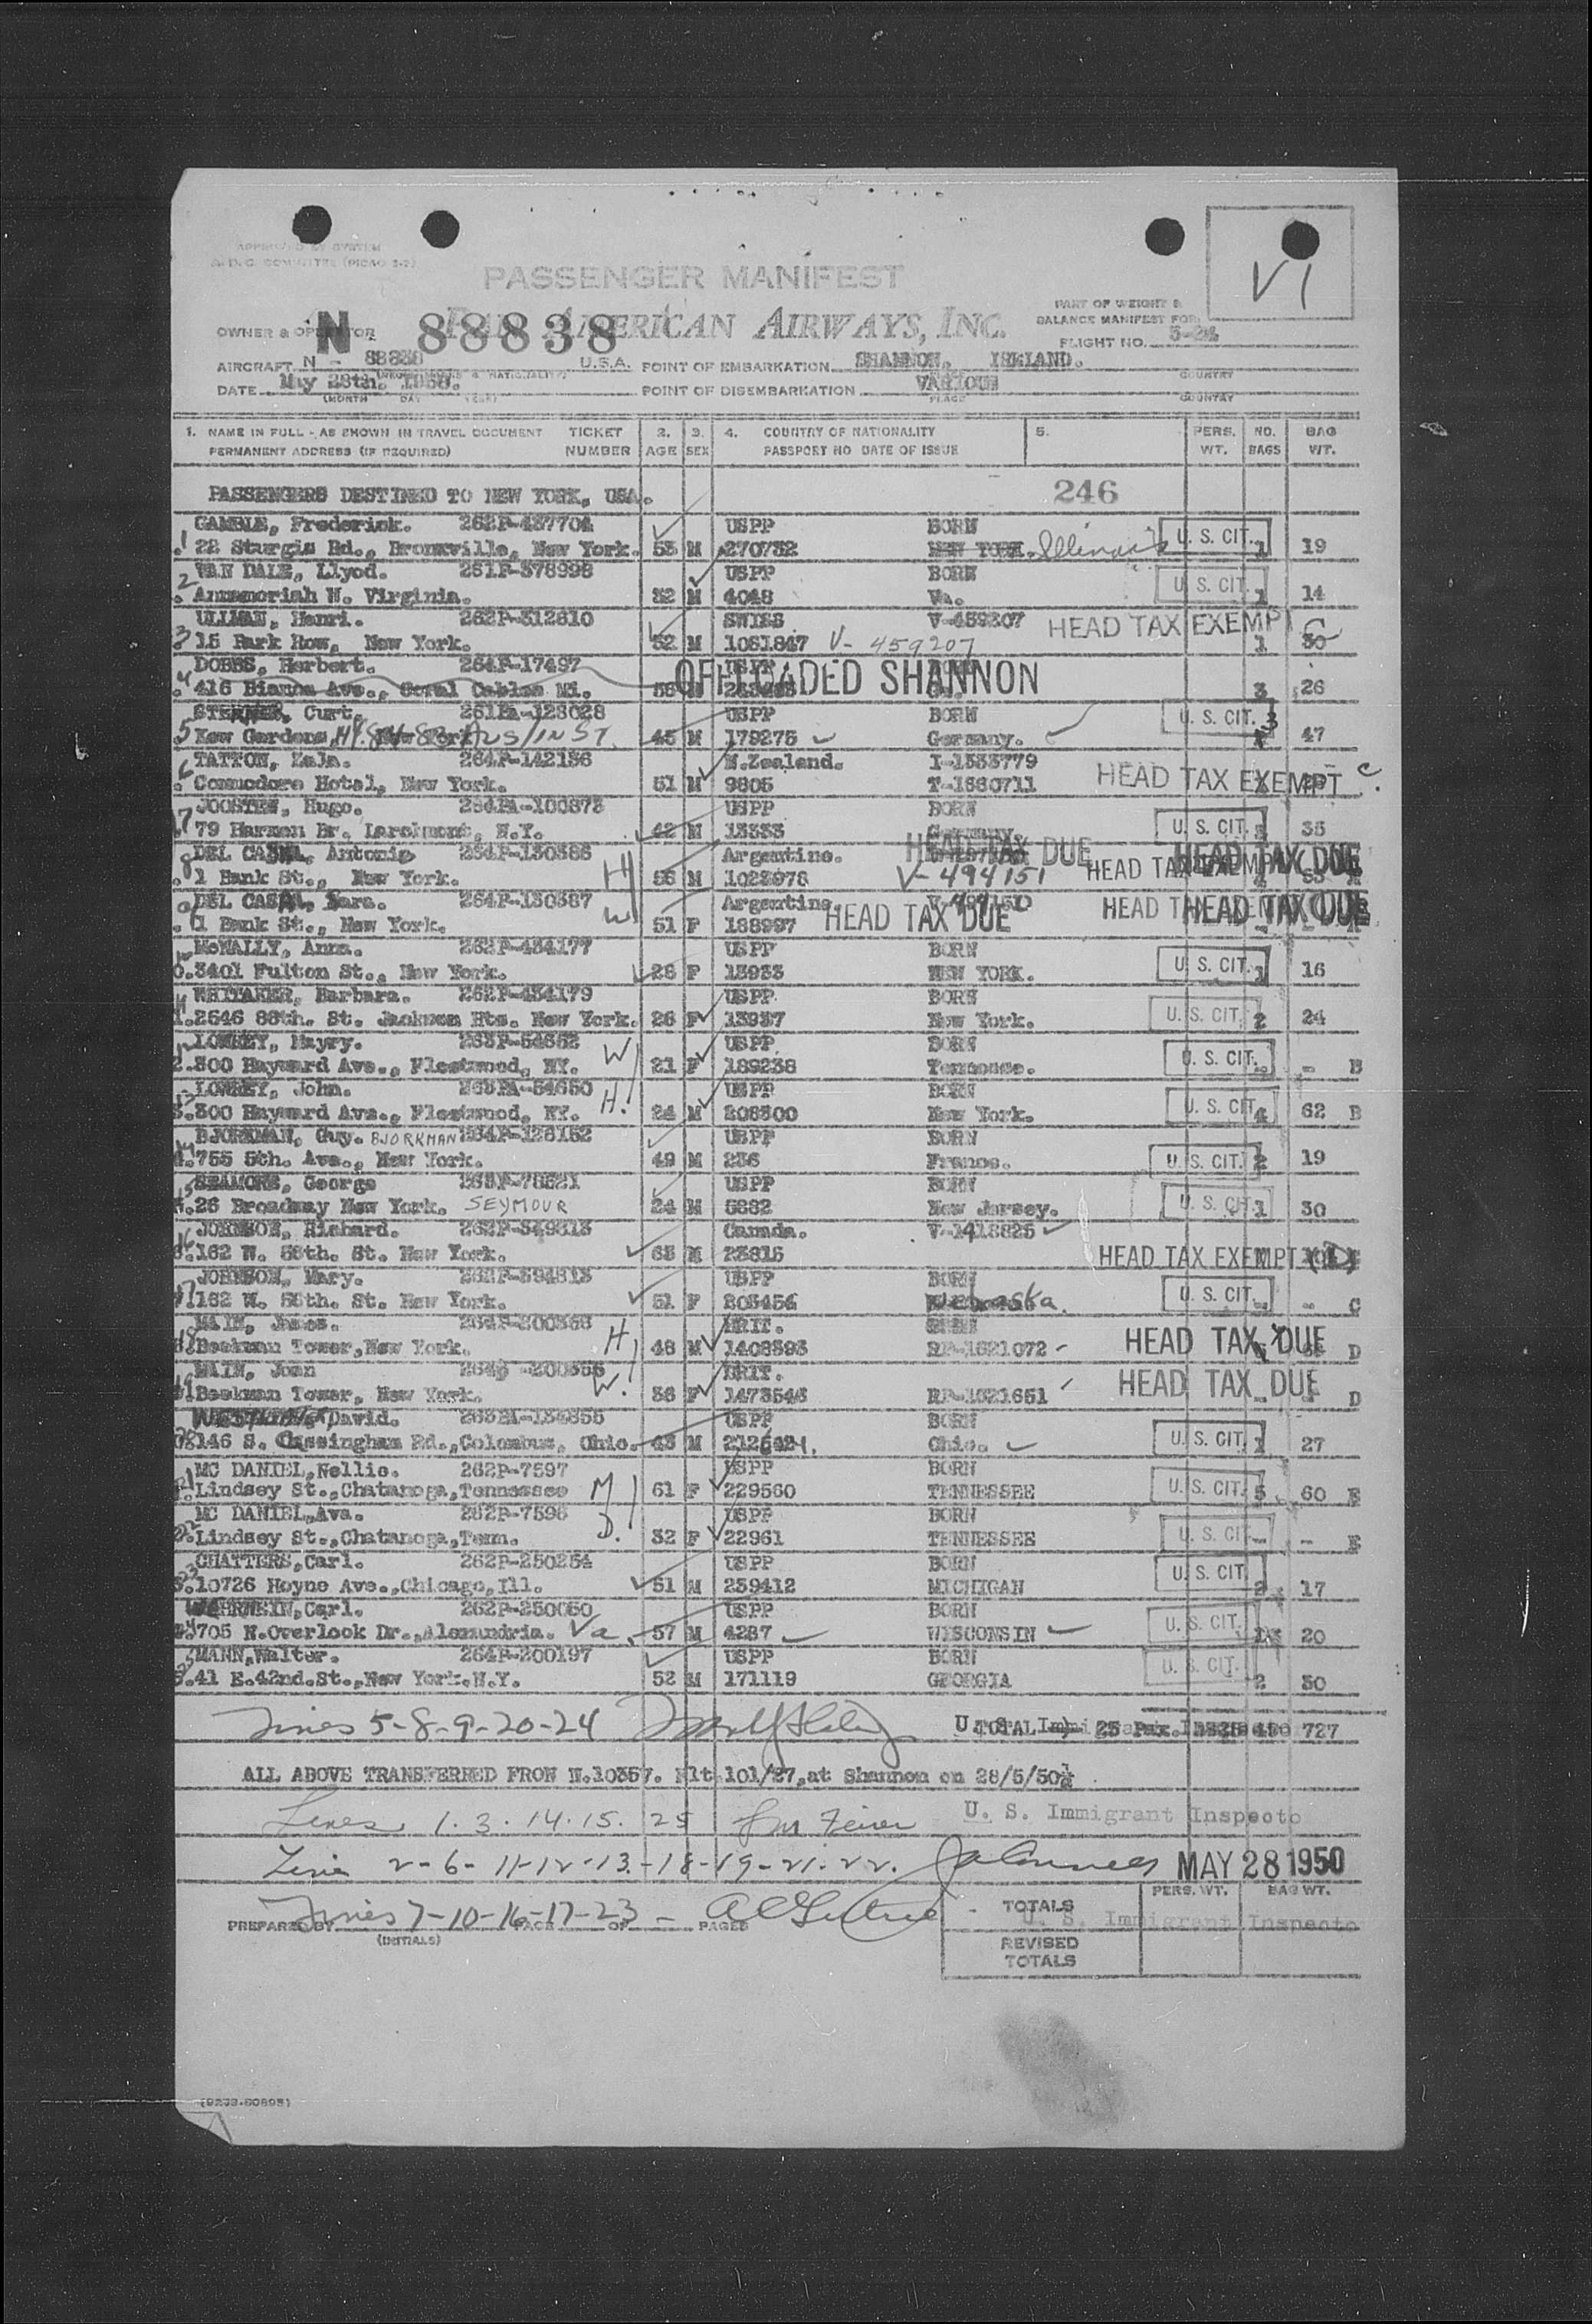 APPROVED BY SYSTEM
A.D.C. COMMITTEE (PICAO 5-2)
VI
PASSENGER MANIFEST
PAN AMERICAN AIRWAYS, INC.
N 88838
OWNER & OPERATOR
PART OF WEIGHT &
BALANCE MANIFEST FOR
FLIGHT NO.
AIRCRAFT N - 88838 U.S.A. POINT OF EMBARKATION SHANNON, IRELAND.
COUNTRY
DATE May 28th. POINT OF DISEMBARKATION VARIOUS
(MONTH DAY YEAR) PLACE COUNTRY
1. NAME IN FULL - AS SHOWN IN TRAVEL DOCUMENT TICKET 2. 3. 4. COUNTRY OF NATIONALITY 5. PERS. NO. BAG
PERMANENT ADDRESS (IF REQUIRED) NUMBER AGE SEX PASSPORT NO DATE OF ISSUE WT. BAGS WT.
PASSENGERS DESTINED TO NEW YORK, USA. 246
GAMBLE, Frederick. 262P-437704 USPP BORN
1 22 Sturgis Rd., Bronxville, New York. 53 M 270732 NEW YORK. Illinois U. S. CIT. 1 19
VAN DALE, Llyod. 261P-378998 USPP BORN
2. Annamoriah W. Virginia. 32 M 4048 Va. U. S. CIT. 1 14
ULLMAN, Henri. 262P-312610 SWISS V-459207 HEAD TAX EXEMPT C
3 15 Park Row, New York. 52 M 1061847 V- 459207 1 30
DOBBS, Herbert. 264P-17497 USPP
4 416 Bianna Ave., Coral Gables OFFLOADED SHANNON 3 26
Curt. 261PA-123028 USPP BORN
5 Kew Gardens, New York AUSTIN ST. 45 M 179275 Germany. U. S. CIT. 3 47
TATTON, 264P-142136 N.Zealand. I-1333779
6 Commodore Hotel, New York. 51 M 9805 T-1880711 HEAD TAX EXEMPT C.
JOOSTEN, Hugo. 264PA-100873 USPP BORN
7 79 Harmon Dr. Larchmont, N.Y. 42 M 13333 Germany. U. S. CIT. 35
DEL CASAL, Antonio 264P-130386 Argentine. HEAD TAX DUE HEAD TAX DUE
8 1 Bank St., New York. H 56 M 1023978 V-494151 HEAD TAX EXEMPT
DEL CASAL, Sara. 264P-130387 Argentine. HEAD TAX DUE HEAD TAX DUE
9 1 Bank St., New York. W 51 F 188997
McNALLY, Anna. 262P-434177 USPP BORN
10. 3401 Fulton St., New York. 28 F 13933 NEW YORK. U. S. CIT. 1 16
WHITAKER, Barbara. 262P-434179 USPP BORN
11. 2546 88th. St. Jackson Hts. New York. 26 F 13937 New York. U. S. CIT. 2 24
LOWREY, 263P-54652 USPP BORN
12. 300 Hayward Ave., Fleetwood, NY. W 21 F 189238 Tennessee. U. S. CIT. - B
LOWREY, John. 263PA-54650 USPP BORN
13. 300 Hayward Ave., Fleetwood, NY. H. 24 M 208300 New York. U. S. CIT. 4 62 B
BJORKMAN, Guy. BJORKMAN 264P-126152 USPP BORN
14. 755 5th. Ave., New York. 49 M 236 France. U. S. CIT. 2 19
SEAMORE, George 263P-78521 USPP BORN
15. 26 Broadway New York. SEYMOUR 24 M 5882 New Jersey. U. S. CIT. 1 30
JOHNSON, Richard. 262P-349313 Canada. V-1413825
16. 162 W. 56th. St. New York. 63 M 23815 HEAD TAX EXEMPT
JOHNSON, Mary. USPP BORN
17. 162 W. 56th. St. New York. 51 F 203456 Nebraska. U. S. CIT. - - C
MAIN, James. BRIT.
18. Beekman Tower, New York. H. 48 M 1408393 RP-1621072 HEAD TAX DUE D
MAIN, Joan BRIT.
19. Beekman Tower, New York. W. 36 F 1473546 RP-1621651 HEAD TAX DUE - D
David. USPP BORN
20. 146 S. Cassingham Rd., Colombus, Ohio. 43 M Ohio. U. S. CIT. 1 27
MC DANIEL, Nellie. 262P-7597 USPP BORN
21. Lindsey St., Chatanoga, Tennessee M 61 F 229560 TENNESSEE U. S. CIT. 5 60 E
MC DANIEL, Ava. 262P-7596 USPP BORN
22. Lindsey St., Chatanoga, Tenn. D. 32 F 22961 TENNESSEE U. S. CIT. - - E
CHATTERS, Carl. 262P-250254 USPP BORN
23. 10726 Hoyne Ave., Chicago, Ill. 51 M 239412 MICHIGAN U. S. CIT. 2 17
Carl. 262P-250050 USPP BORN
24. 3705 N.Overlook Dr., Alexandria. Va. 57 M 4287 WISCONSIN U. S. CIT. 20
MANN, Walter. 264P-200197 USPP BORN
25. 41 E.42nd.St., New York.N.Y. 52 M 171119 GEORGIA U. S. CIT. 2 30
Lines 5-8-9-20-24 TOTAL 25 Pax. 727
ALL ABOVE TRANSFERRED FROM N.10357. Flt 101/27, at Shannon on 28/5/50
Lines 1. 3. 14. 15. 25 U. S. Immigrant Inspecto
Line 2-6-11-12-13-18-19-21-22. MAY 28 1950
PERS. WT. BAG WT.
Lines 7-10-16-17-23 - TOTALS
U. S. Immigrant Inspecto
PREPARED BY PAGE OF PAGES
(INITIALS)
REVISED
TOTALS